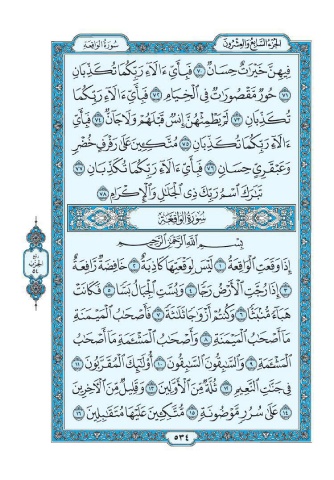 الجزء السابع والعشرون
سورة الواقعة
فِيهِنَّ خَيْرَٰتٌ حِسَانٌ ٧٠ فَبِأَيِّ ءَالَآءِ رَبِّكُمَا تُكَذِّبَانِ
٧١ حُورٌ مَّقْصُورَٰتٌ فِي ٱلْخِيَامِ ٧٢ فَبِأَيِّ ءَالَآءِ رَبِّكُمَا
تُكَذِّبَانِ ٧٣ لَمْ يَطْمِثْهُنَّ إِنسٌ قَبْلَهُمْ وَلَا جَآنٌّ ٧٤ فَبِأَيِّ
ءَالَآءِ رَبِّكُمَا تُكَذِّبَانِ ٧٥ مُتَّكِـِٔينَ عَلَىٰ رَفْرَفٍ خُضْرٍ
وَعَبْقَرِيٍّ حِسَانٍ ٧٦ فَبِأَيِّ ءَالَآءِ رَبِّكُمَا تُكَذِّبَانِ ٧٧
تَبَٰرَكَ ٱسْمُ رَبِّكَ ذِي ٱلْجَلَٰلِ وَٱلْإِكْرَامِ ٧٨
سورة الواقعة
بِسْمِ ٱللَّهِ ٱلرَّحْمَٰنِ ٱلرَّحِيمِ
إِذَا وَقَعَتِ ٱلْوَاقِعَةُ ١ لَيْسَ لِوَقْعَتِهَا كَاذِبَةٌ ٢ خَافِضَةٌ رَّافِعَةٌ
٣ إِذَا رُجَّتِ ٱلْأَرْضُ رَجًّا ٤ وَبُسَّتِ ٱلْجِبَالُ بَسًّا ٥ فَكَانَتْ
هَبَآءً مُّنۢبَثًّا ٦ وَكُنتُمْ أَزْوَٰجًا ثَلَٰثَةً ٧ فَأَصْحَٰبُ ٱلْمَيْمَنَةِ
مَآ أَصْحَٰبُ ٱلْمَيْمَنَةِ ٨ وَأَصْحَٰبُ ٱلْمَشْـَٔمَةِ مَآ أَصْحَٰبُ
ٱلْمَشْـَٔمَةِ ٩ وَٱلسَّٰبِقُونَ ٱلسَّٰبِقُونَ ١٠ أُو۟لَٰٓئِكَ ٱلْمُقَرَّبُونَ ١١
فِي جَنَّٰتِ ٱلنَّعِيمِ ١٢ ثُلَّةٌ مِّنَ ٱلْأَوَّلِينَ ١٣ وَقَلِيلٌ مِّنَ ٱلْءَاخِرِينَ
١٤ عَلَىٰ سُرُرٍ مَّوْضُونَةٍ ١٥ مُّتَّكِـِٔينَ عَلَيْهَا مُتَقَٰبِلِينَ ١٦
الحزب
٥٤
٥٣٤